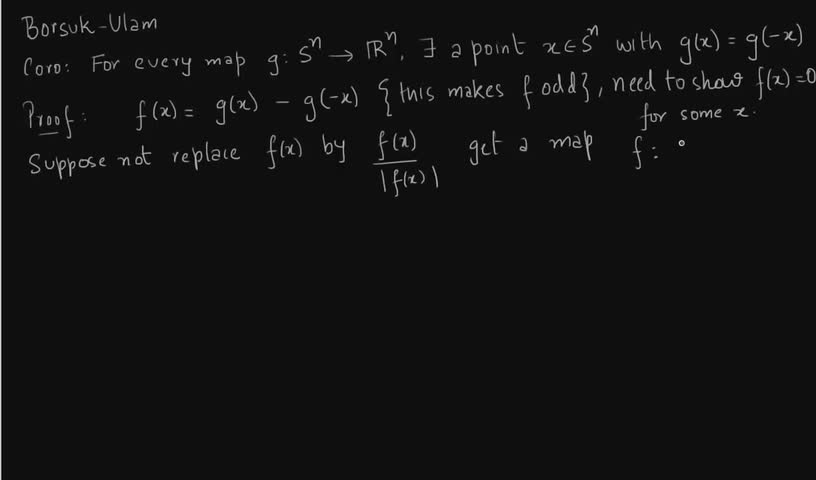 Borsuk-Ulam
Coro: For every map g: Sⁿ → ℝⁿ, ∃ a point x ∈ Sⁿ with g(x) = g(-x)
Proof: f(x) = g(x) - g(-x) {this makes f odd}, need to show f(x)=0
for some x.
Suppose not replace f(x) by f(x)/|f(x)| get a map f: